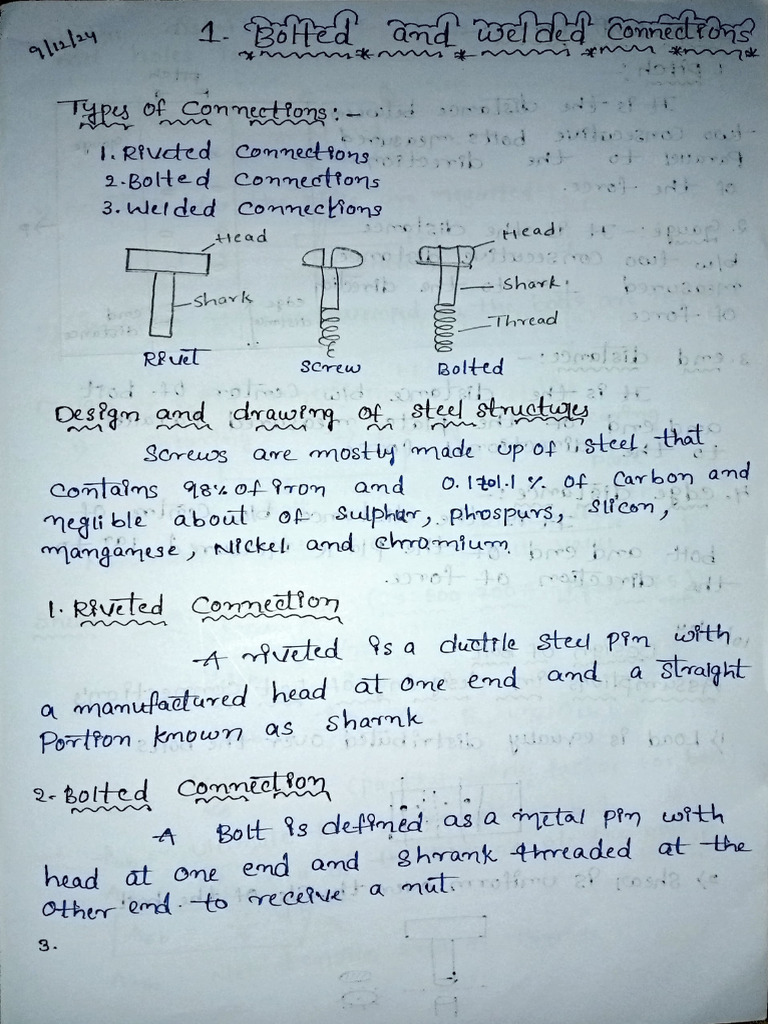 9/12/24
1. Bolted and welded connections
Types of Connections:-
1. Riveted Connections
2. Bolted Connections
3. Welded Connections
Head
Shark
Rivet
Screw
Head
Shark
Thread
Bolted
Design and drawing of steel structures
Screws are mostly made up of steel. that
contains 98% of iron and 0.1 to 1.1 % of Carbon and
neglible about of Sulphur, phospurs, Slicon,
manganese, Nickel and Chromium.
1. Riveted Connection
A riveted is a ductile steel pin with
a manufactured head at one end and a straight
Portion known as Sharnk
2. Bolted Connection
A Bolt is defined as a metal pin with
head at one end and Shrank threaded at the
other end to receive a nut.
3.